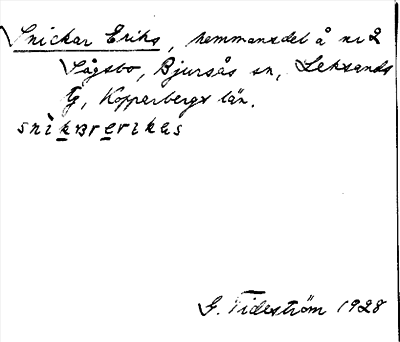 Snickar Eriks, hemmansdel å nr 2
Sågsbo, Bjursås sn, Leksands
tg, Kopparbergs län.
snìkarerikas
G. Tideström 1928